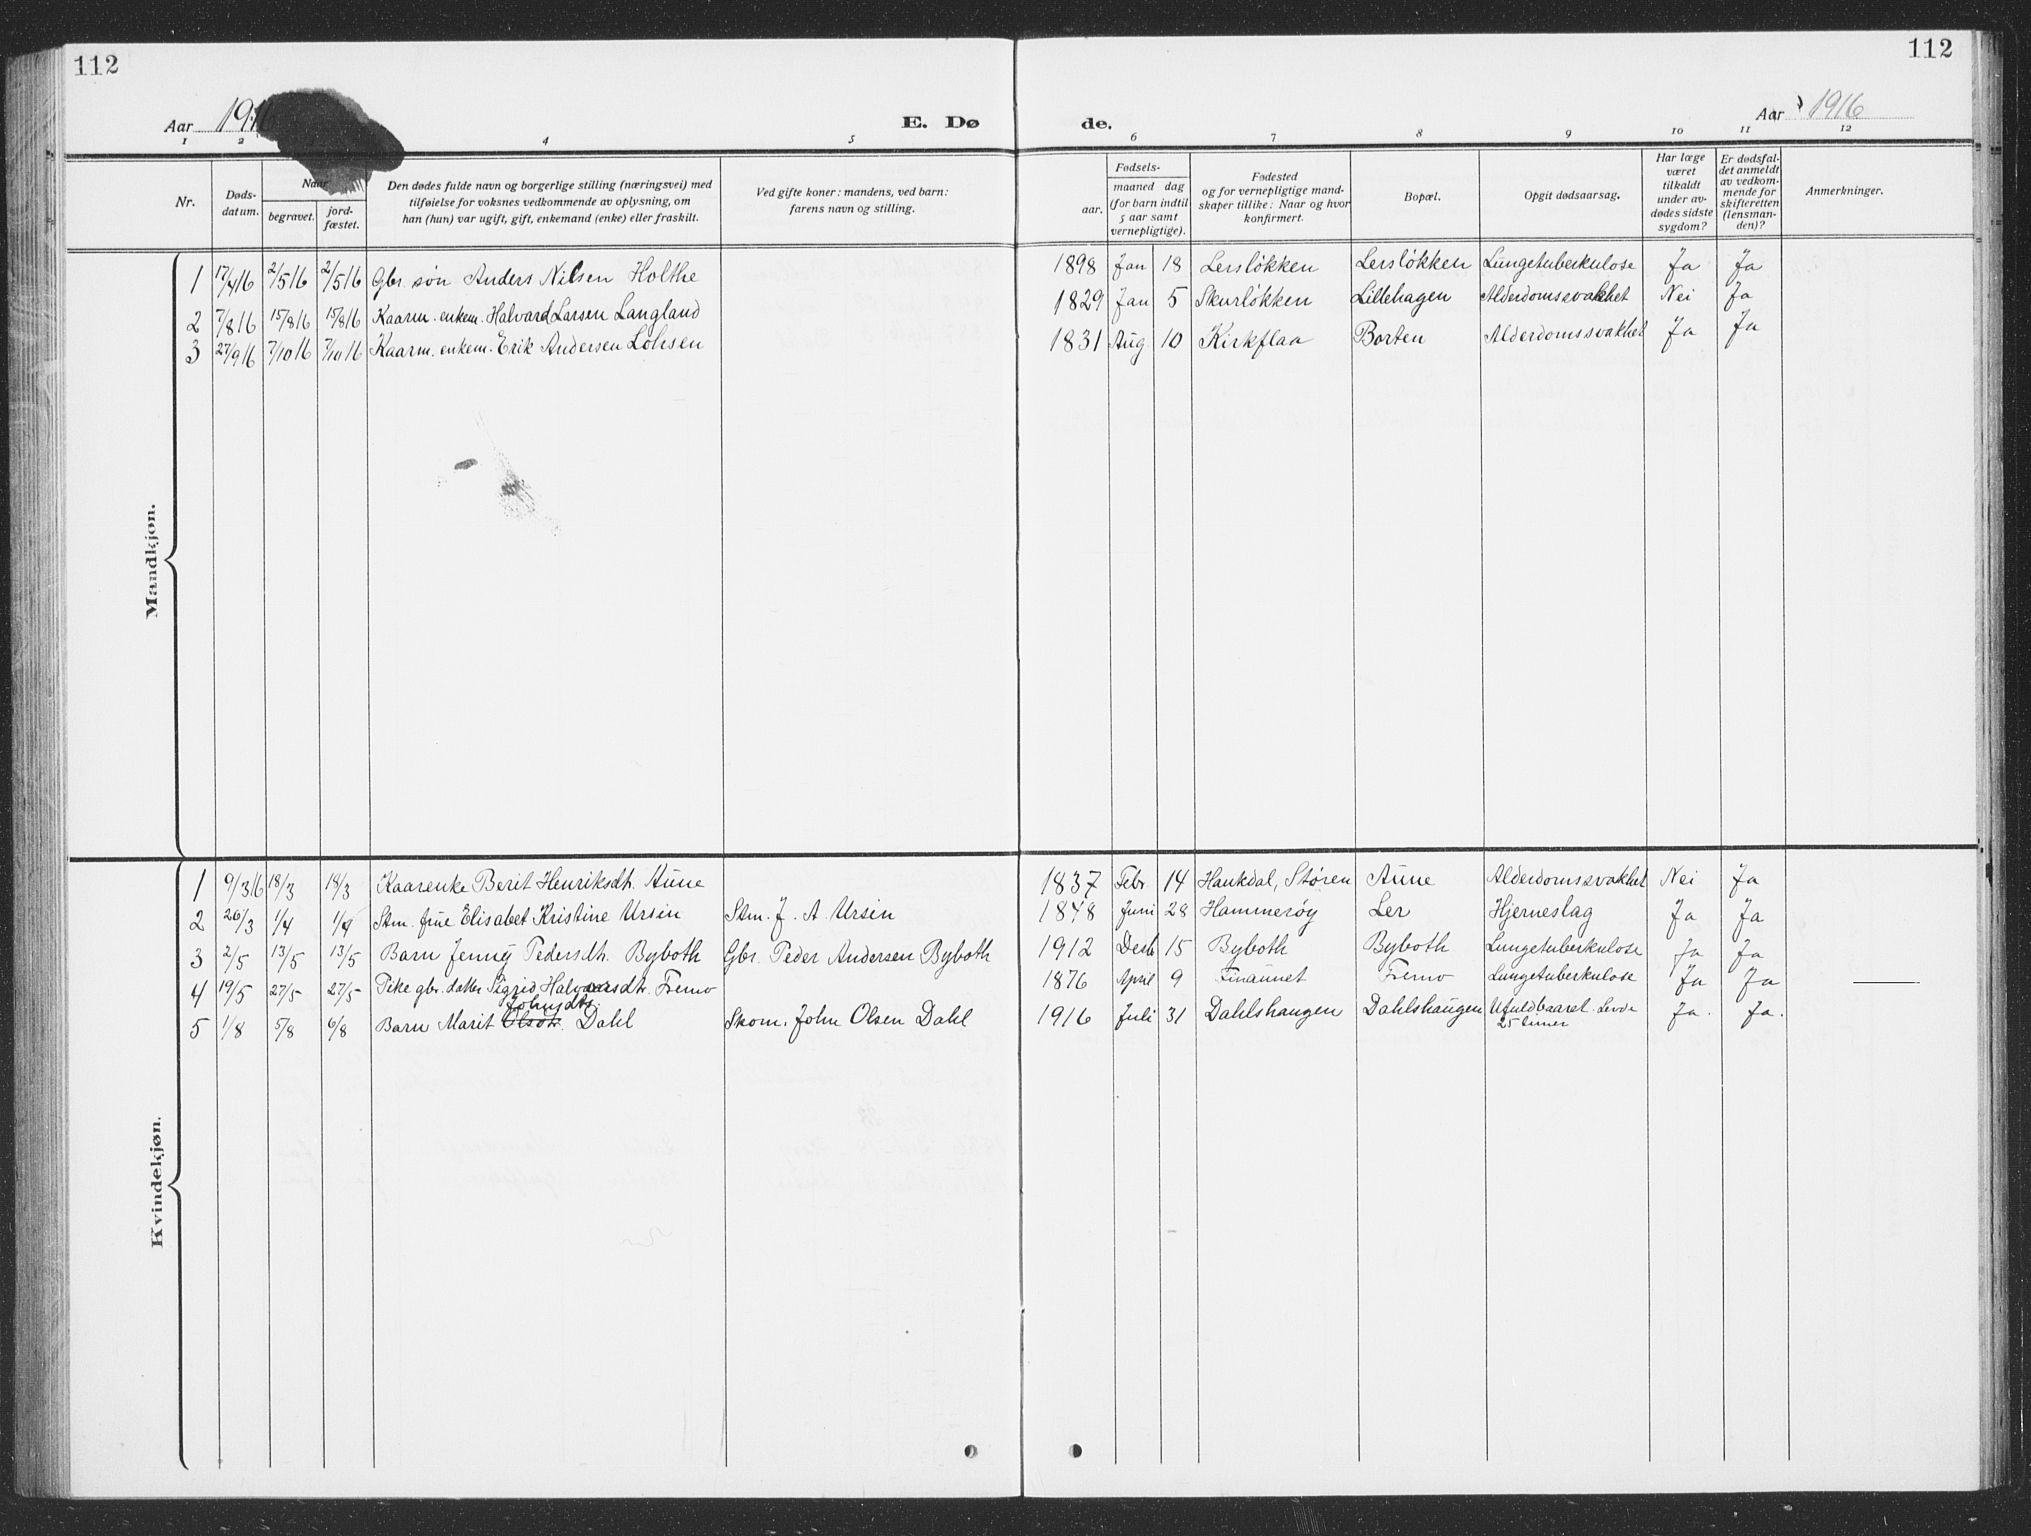 112
112
Aar 1916 E. Døde. Aar 1916
1 2 4 5 6 7 8 9 10 11 12
Nr.
Døds-
datum.
Naar
begravet.
jord-
fæstet.
Den dødes fulde navn og borgerlige stilling (næringsvei) med
tilføielse for voksnes vedkommende av oplysning, om
han (hun) var ugift, gift, enkemand (enke) eller fraskilt.
Ved gifte koner: mandens, ved barn:
farens navn og stilling.
Fødsels-
aar.
maaned dag
(for barn indtil
5 aar samt
vernepligtige).
Fødested
og for vernepligtige mand-
skaper tillike: Naar og hvor
konfirmert.
Bopæl.
Opgit dødsaarsag.
Har læge
været
tilkaldt
under av-
dødes sidste
sygdom?
Er dødsfal-
det anmeldt
av vedkom-
mende for
skifteretten
(lensman-
den)?
Anmerkninger.
Mandkjøn.
1 17/4 16 2/5 16 2/5 16 Gbr. søn Anders Nilsen Holthe 1898 Jan 18 Lersløkken Lersløkken Lungetuberkulose Ja Ja
2 7/8 16 15/8 16 15/8 16 Kaarm. enkem. Halvard Larsen Langland 1829 Jan 5 Skurløkken Lillehagen Alderdomssvakhet Nei Ja
3 27/9 16 7/10 16 7/10 16 Kaarm. enkem. Erik Andersen Løhsen 1831 Aug 10 Kirkflaa Borten Alderdomssvakhet Ja Ja
Kvindekjøn.
1 9/3 16 18/3 18/3 Kaarenke Berit Henriksdt. Aune 1837 Febr 14 Haukdal, Støren Aune Alderdomssvakhet Nei Ja
2 26/3 1/4 1/4 Stm. frue Elisabet Kristine Ursin Stm. J. A. Ursin 1848 Juni 28 Hammerøy Ler Hjerneslag Ja Ja
3 2/5 13/5 13/5 Barn Jenny Pedersdt. Byboth Gbr. Peder Andersen Byboth 1912 Desb 15 Byboth Byboth Lungetuberkulose Ja Ja
4 19/5 27/5 27/5 Pike gbr. datter Sigrid Halvorsdt. Fremo 1876 April 9 Finamnet Fremo Lungetuberkulose Ja Ja
Johnsdt.
5 1/8 5/8 6/8 Barn Marit Olsdt. Dahl Skom. John Olsen Dahl 1916 Juli 31 Dahlshaugen Dahlshaugen Ufuldbaaret. Levde Ja. Ja.
25 timer